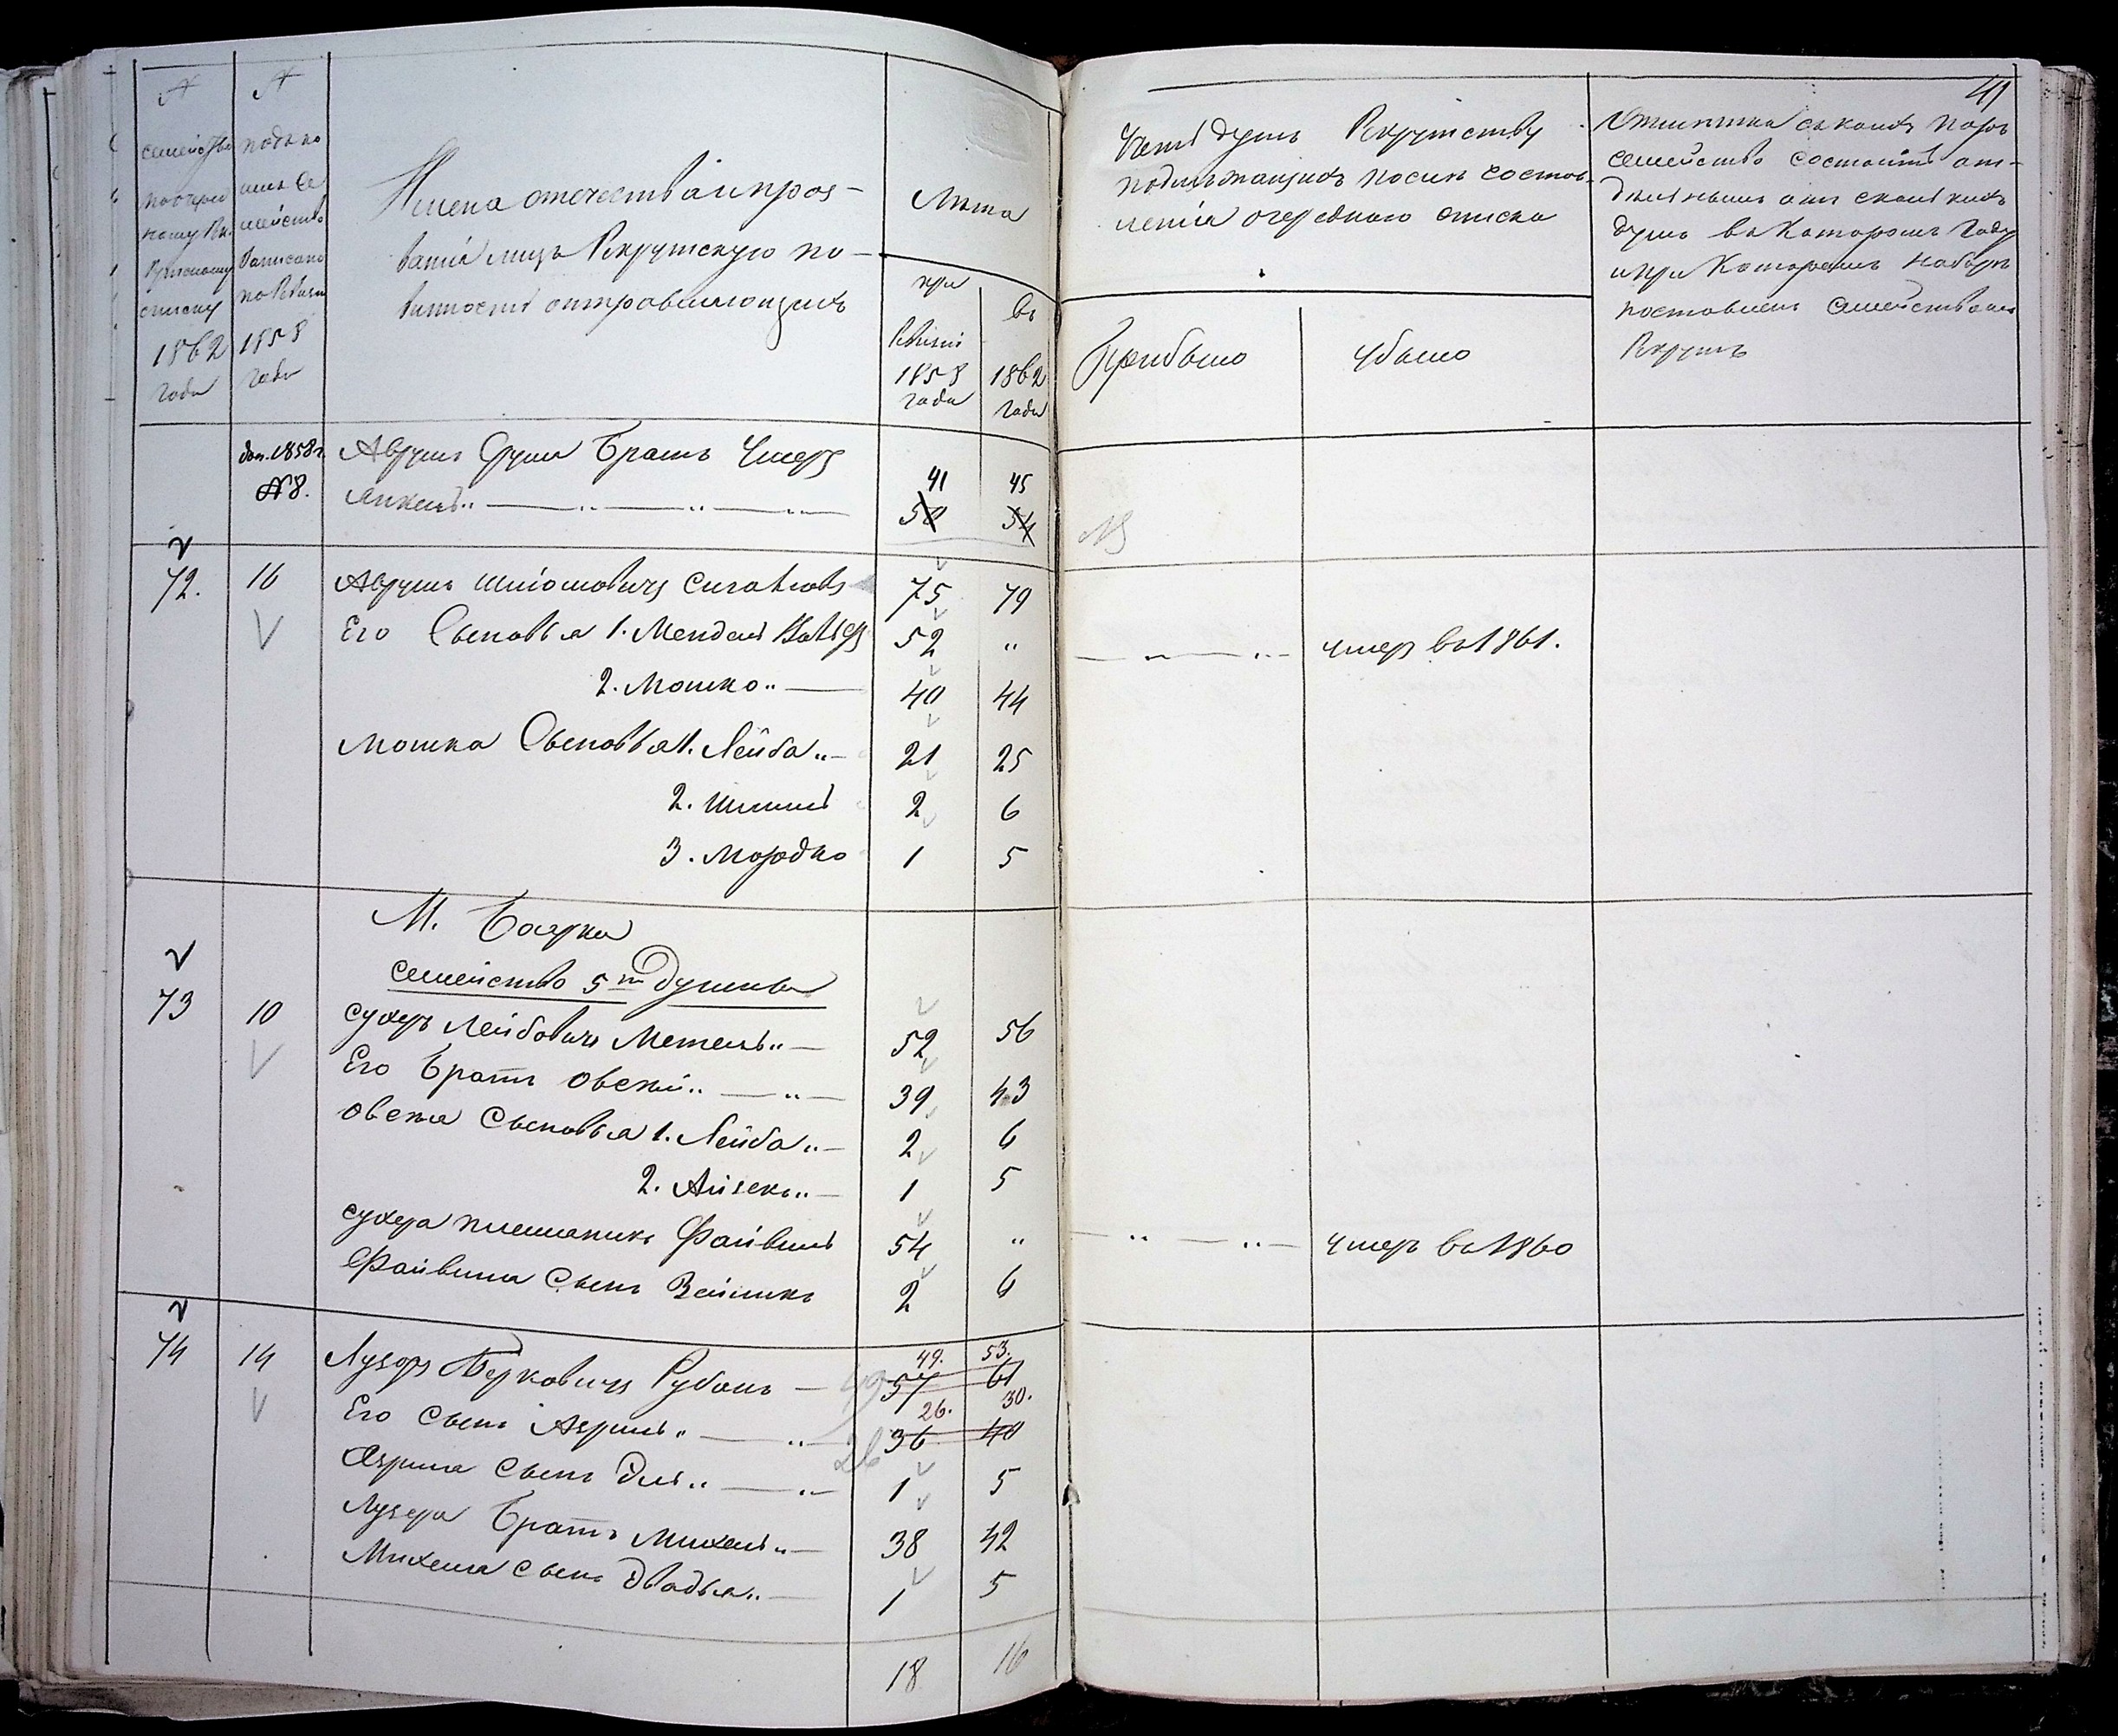 41
№
семейства
по очеред
ному Ре
крутскому
списку
1862
года
№
подъ ко
имъ се
мейство
записано
по Ревизіи
1858
года
Имена отечества и проз-
ванія лицъ Рекрутскую по-
винность отправляющихъ
Лѣта
при
Ревизіи
1858
года
въ
1862
году
Счетъ душъ Рекрутству
подлежащихъ послѣ состав-
ленія очереднаго списка
Прибыло
убыло
Отмѣтка съ какихъ поръ
семейство состоитъ от-
дѣльнымъ
душъ въ которомъ году
и при которомъ наборѣ
поставленъ семействомъ
Рекрутъ
доп. 1858 г.
№ 8.
Аврумъ Сруля Братъ Умеръ
Янкель „ — „ — „ — „
41 45
58 54
NB
72. 16 Аврумъ Шліомовичъ 75 79
Его Сыновья 1. Мендель 52 „ — „ — „ — умеръ въ 1861.
2. Мошко „ — 40 44
Мошка Сыновья 1. Лейба „ — 21 25
2. Шмиль 2 6
3. Мордко 1 5
М. Боярка
Семейство 5ти душнае
73 10 Сухеръ Лейбовичъ Метель „ — 52 56
Его Братъ Овсей „ — „ — 39 43
Овсея Сыновья 1. Лейба „ — 2 6
2. Айзекъ „ — 1 5
Сухера племяникъ Файвель 54 „ — „ — „ — Умеръ въ 1860
Файвеля Сынъ Зейликъ 2 6
49. 53.
74 14 Лузоръ Берковичъ Рубанъ — 49 57 61
26. 30.
Его Сынъ Азриль „ — „ — 26 36 40
Азриля Сынъ Эль „ — „ — 1 5
Лузера Братъ Михель „ — 38 42
Михеля Сынъ Овадья „ — 1 5
18 16